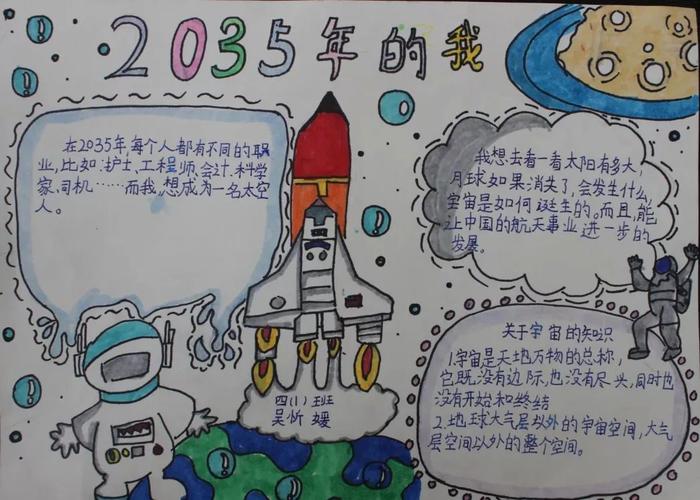 2035年的我
在2035年,每个人都有不同的职
业,比如:护士、工程师、会计、科学
家、司机……而我,想成为一名太空
人。
我想去看一看太阳有多大,
月球如果消失了,会发生什么,
宇宙是如何诞生的。而且,能
让中国的航天事业进一步的
发展。
关于宇宙的知识
1.宇宙是天地万物的总称,
它既没有边际,也没有尽头,同时也
没有开始和终结
2.地球大气层以外的宇宙空间,大气
层空间以外的整个空间。
四(1)班
吴忻媛